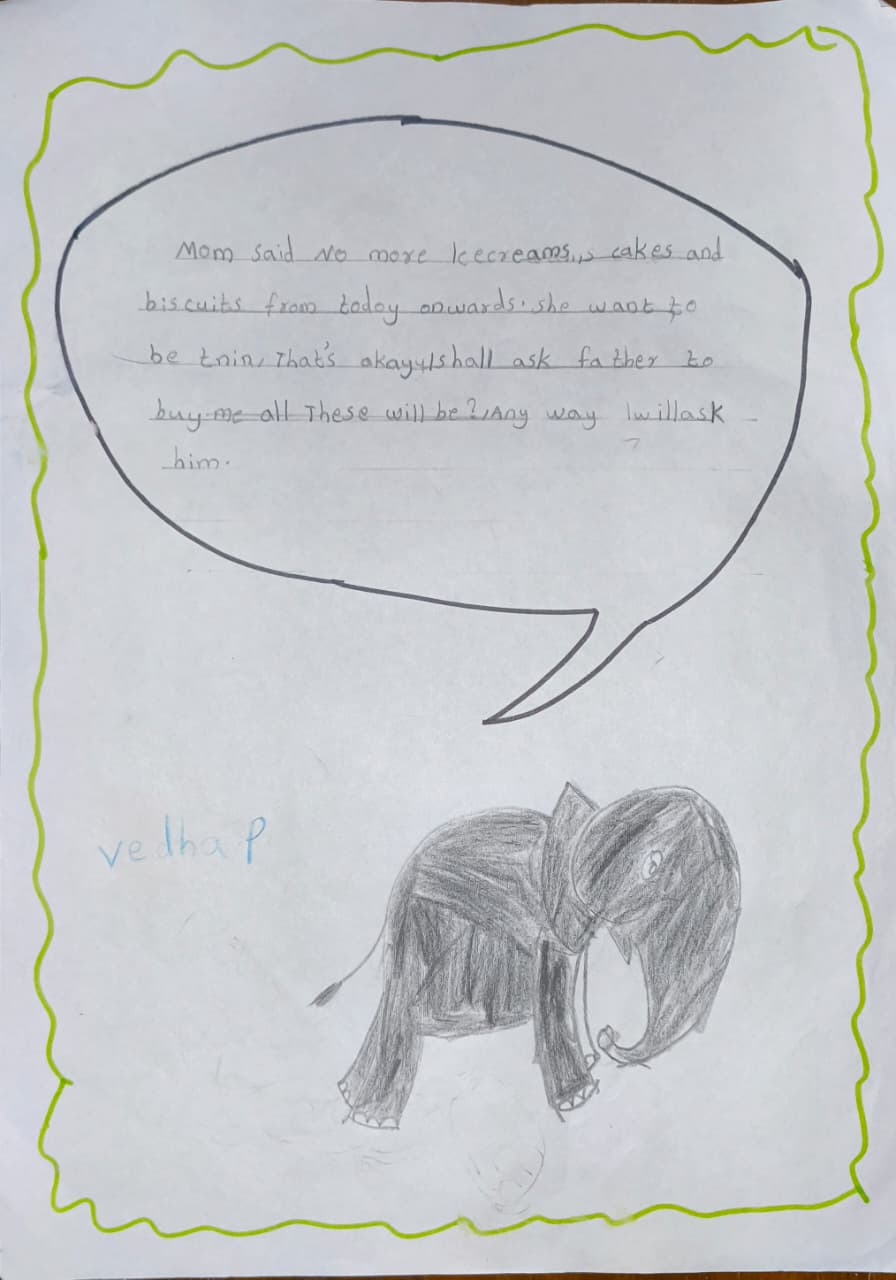 Mom said No more Icecreams,, cakes and
biscuits from today onwards. she want to
be tnin, That's okay, I shall ask father to
buy me all These will be?, Any way I will ask
him.
vedha P